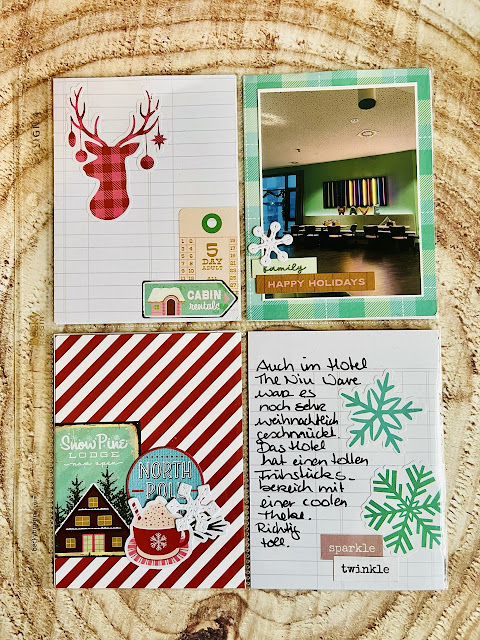 5
DAY
ADULT
CABIN
rentals
WAVE
family
HAPPY HOLIDAYS
Snow Pine
LODGE
now open
NORTH
POL
Auch im Hotel
The Niu Wave
war es
noch sehr
weihnachtlich
geschmückt.
Das Hotel
hat einen tollen
Frühstücks-
bereich mit
einer coolen
Theke.
Richtig
toll.
sparkle
twinkle